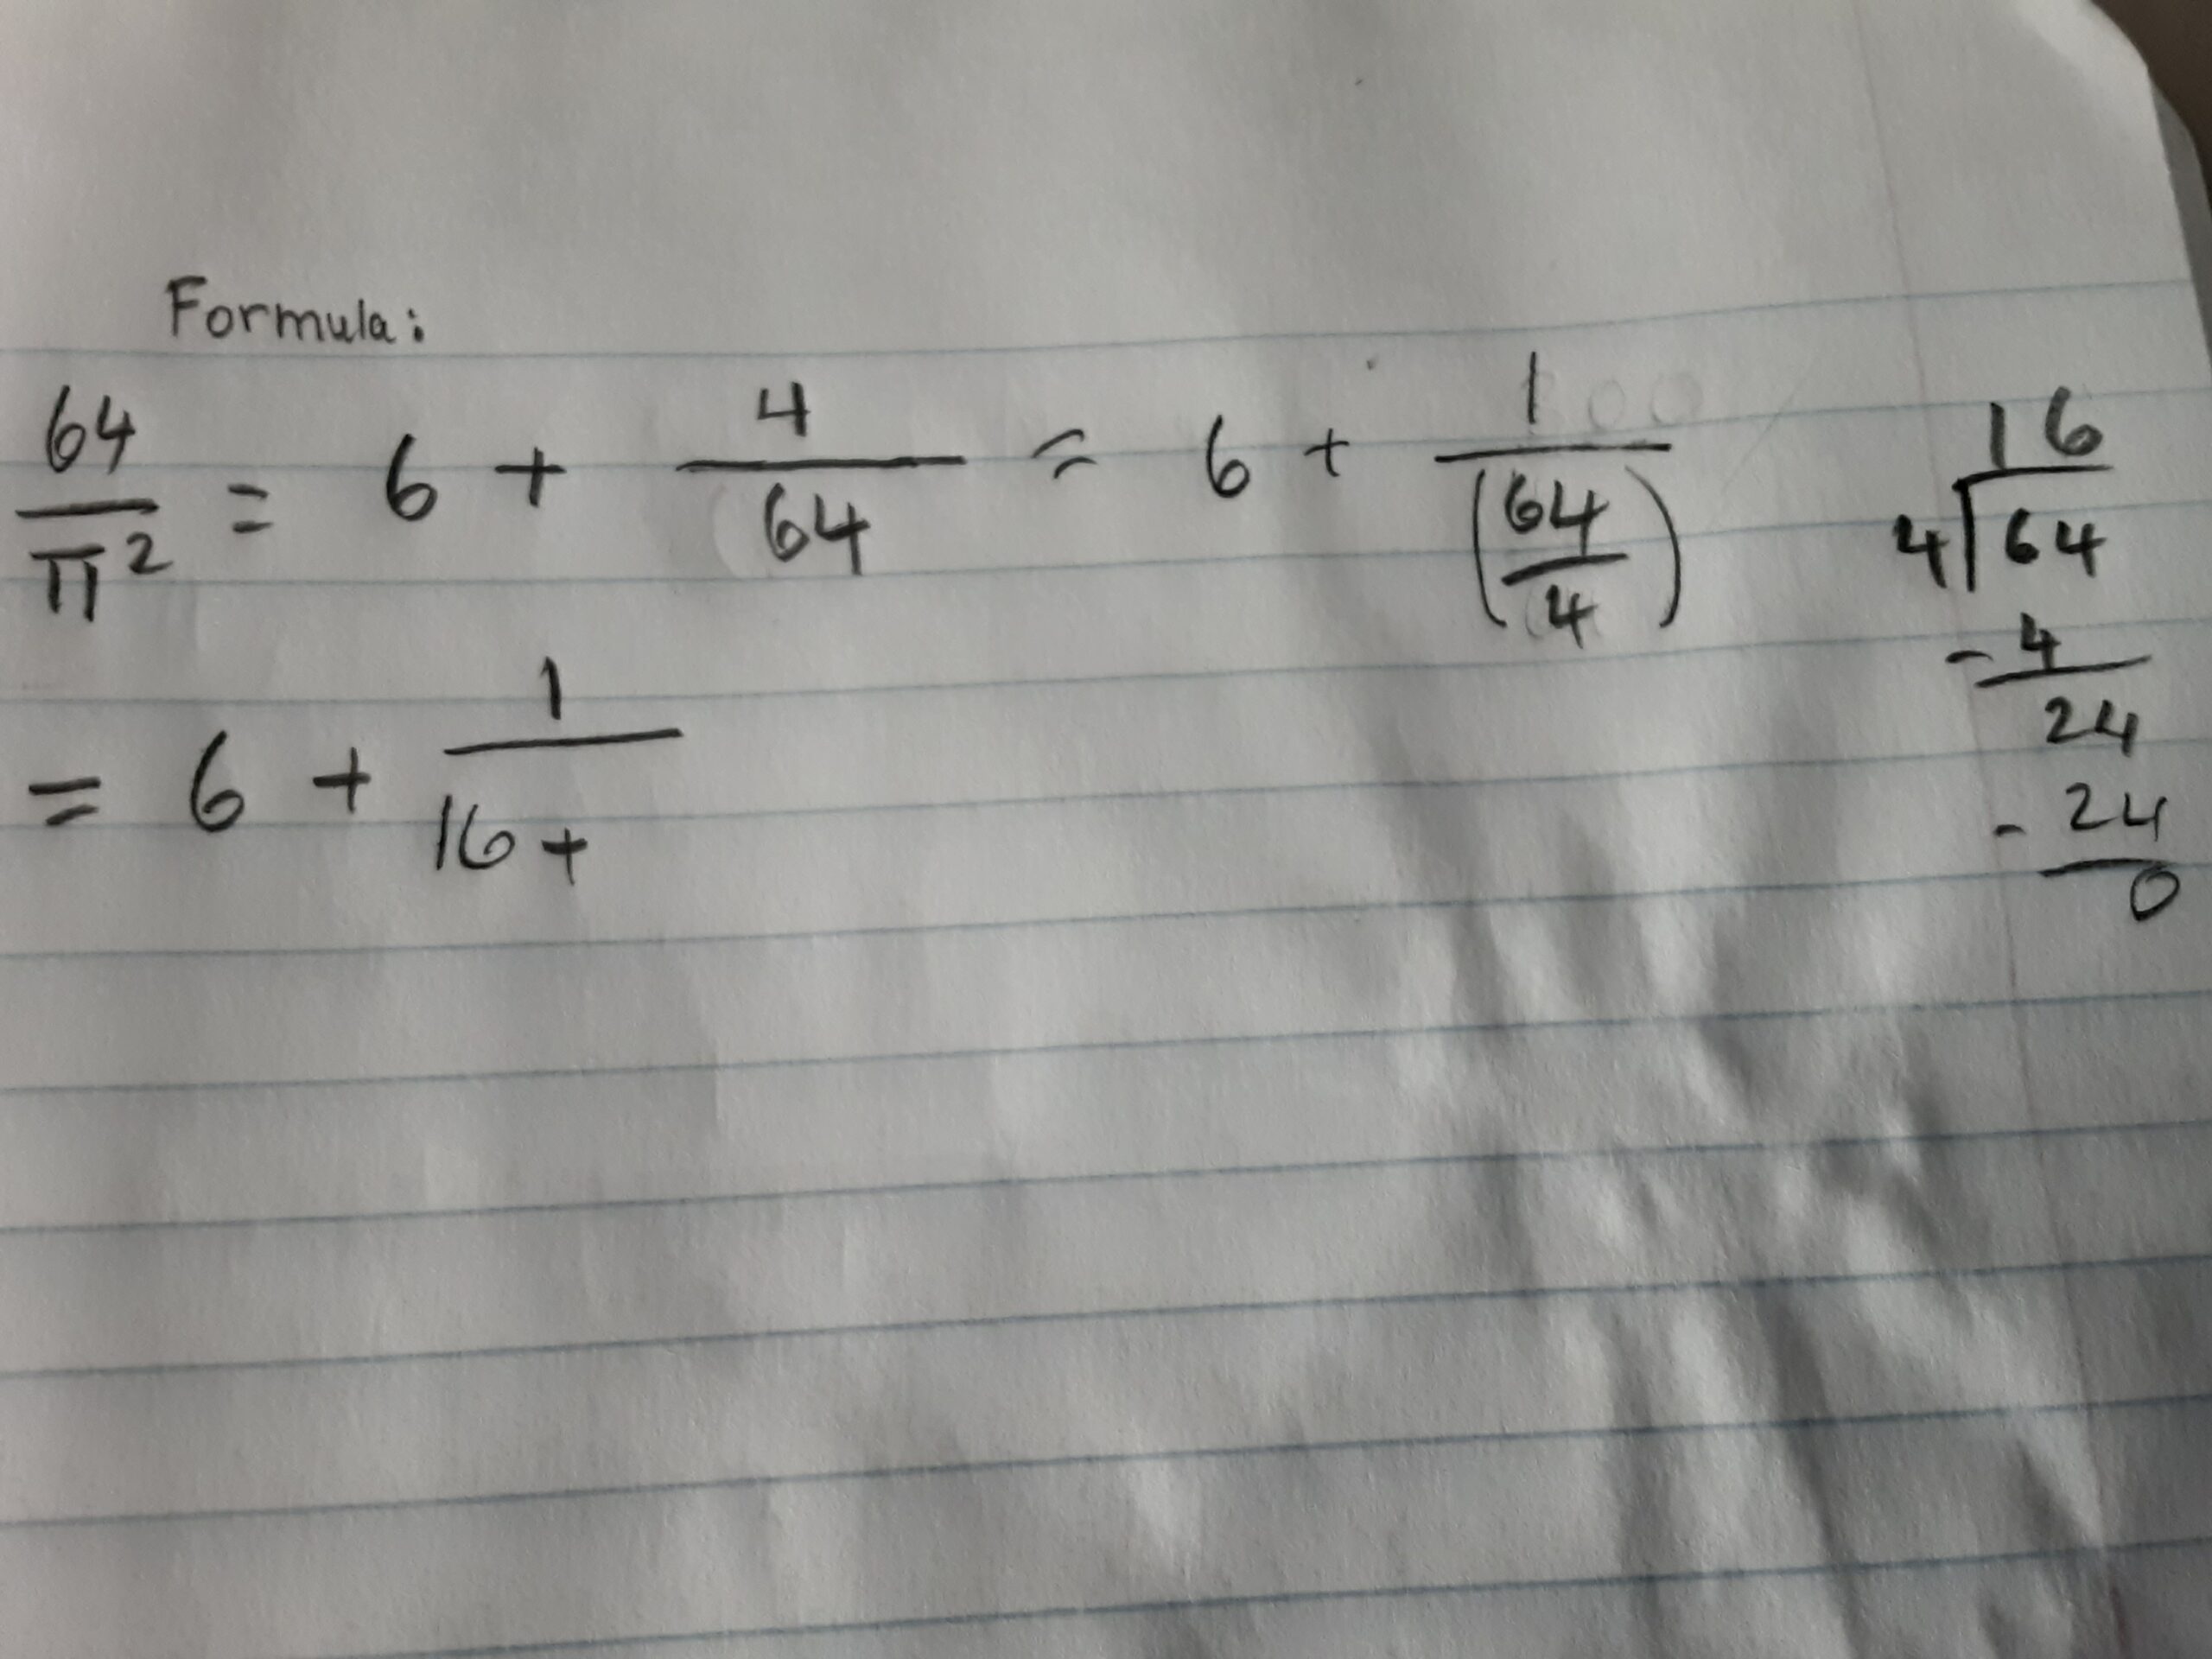 Formula:
64/π² = 6 + 4/64 = 6 + 1/(64/4)
= 6 + 1/16 +
16
4)64
- 4
24
- 24
0